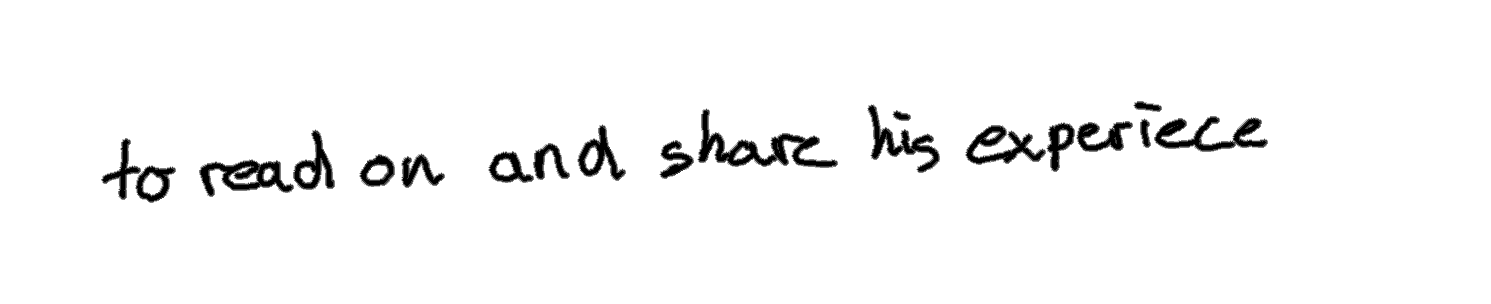 to read on and share his experiece